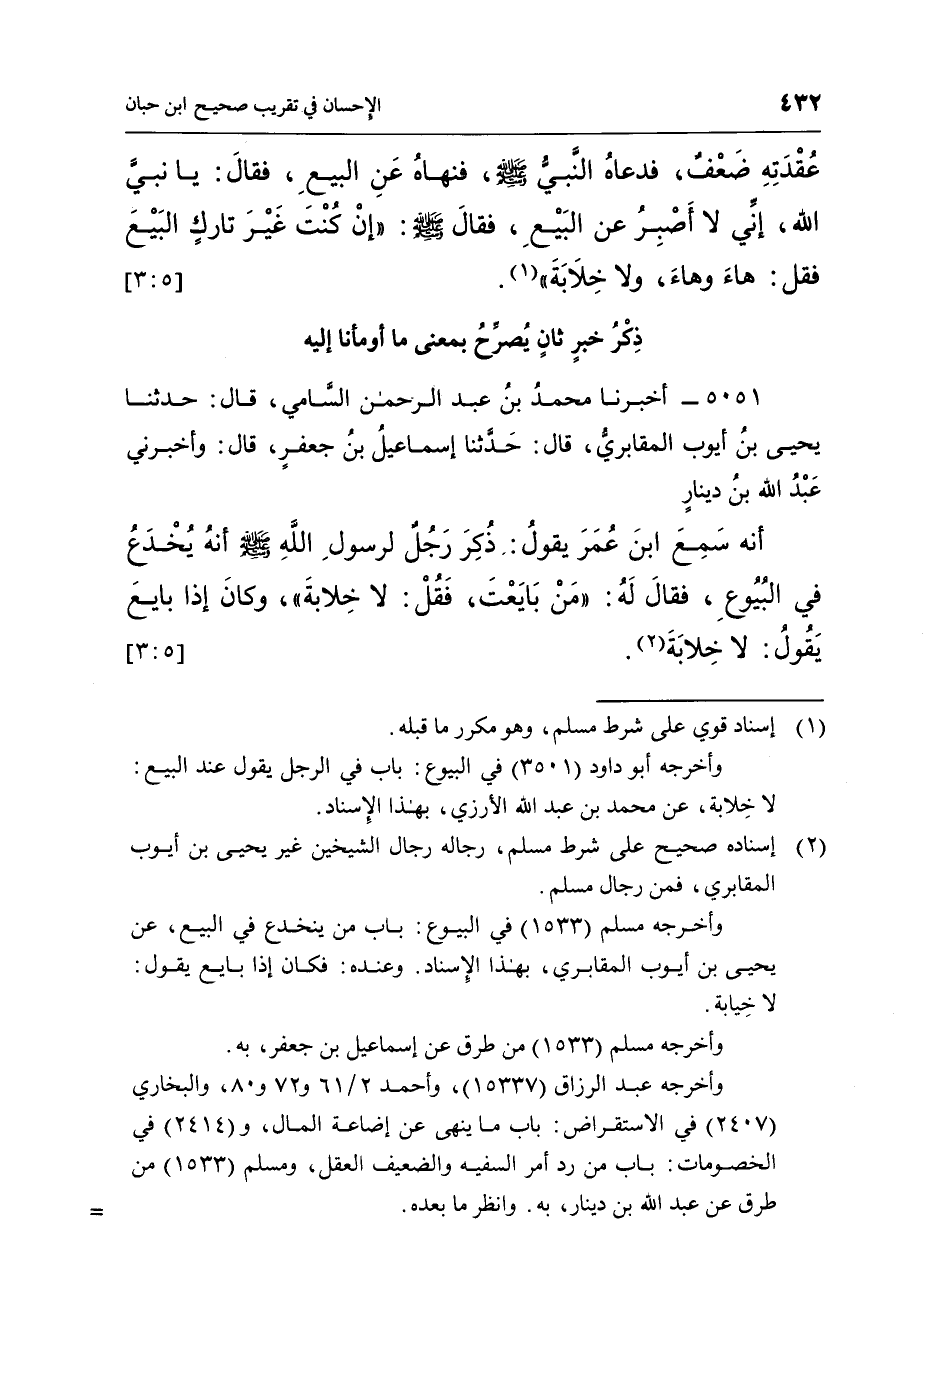 ٤٣٢ الإحسان في تقريب صحيح ابن حبان
عُقْدَتِهِ ضَعْفٌ، فدعاهُ النَّبيُّ ﷺ، فنهاهُ عَنِ البيعِ، فقالَ: يا نبيَّ
الله، إنِّي لا أَصْبِرُ عن البَيْعِ، فقالَ ﷺ: «إنْ كُنْتَ غَيْرَ تاركٍ البَيْعَ
فقل: هاءَ وهاءَ، ولا خِلَابَةَ»(١). [٣:٥]
ذِكْرُ خبرٍ ثانٍ يُصرِّحُ بمعنى ما أومأنا إليه
٥٠٥١ ـ أخبرنا محمدُ بنُ عبد الرحمٰن السَّامي، قال: حدثنا
يحيى بنُ أيوب المقابريُّ، قال: حَدَّثنا إسماعيلُ بنُ جعفرٍ، قال: وأخبرني
عَبْدُ الله بنُ دينارٍ
أنه سَمِعَ ابنَ عُمَرَ يقولُ: ذُكِرَ رَجُلٌ لرسولِ اللَّهِ ﷺ أنهُ يُخْدَعُ
في البُيُوعِ، فقالَ لَهُ: «مَنْ بَايَعْتَ، فَقُلْ: لا خِلابةَ»، وكانَ إذا بايعَ
يَقُولُ: لا خِلابَةَ(٢). [٣:٥]
(١) إسناد قوي على شرط مسلم، وهو مكرر ما قبله.
وأخرجه أبو داود (٣٥٠١) في البيوع: باب في الرجل يقول عند البيع:
لا خِلابة، عن محمد بن عبد الله الأرزي، بهٰذا الإِسناد.
(٢) إسناده صحيح على شرط مسلم، رجاله رجال الشيخين غير يحيى بن أيوب
المقابري، فمن رجال مسلم.
وأخرجه مسلم (١٥٣٣) في البيوع: باب من ينخدع في البيع، عن
يحيى بن أيوب المقابري، بهٰذا الإِسناد. وعنده: فكان إذا بايع يقول:
لا خِيابة.
وأخرجه مسلم (١٥٣٣) من طرق عن إسماعيل بن جعفر، به.
وأخرجه عبد الرزاق (١٥٣٣٧)، وأحمد ٦١/٢ و٧٢ و٨٠، والبخاري
(٢٤٠٧) في الاستقراض: باب ما ينهى عن إضاعة المال، و(٢٤١٤) في
الخصومات: باب من رد أمر السفيه والضعيف العقل، ومسلم (١٥٣٣) من
طرق عن عبد الله بن دينار، به. وانظر ما بعده. =